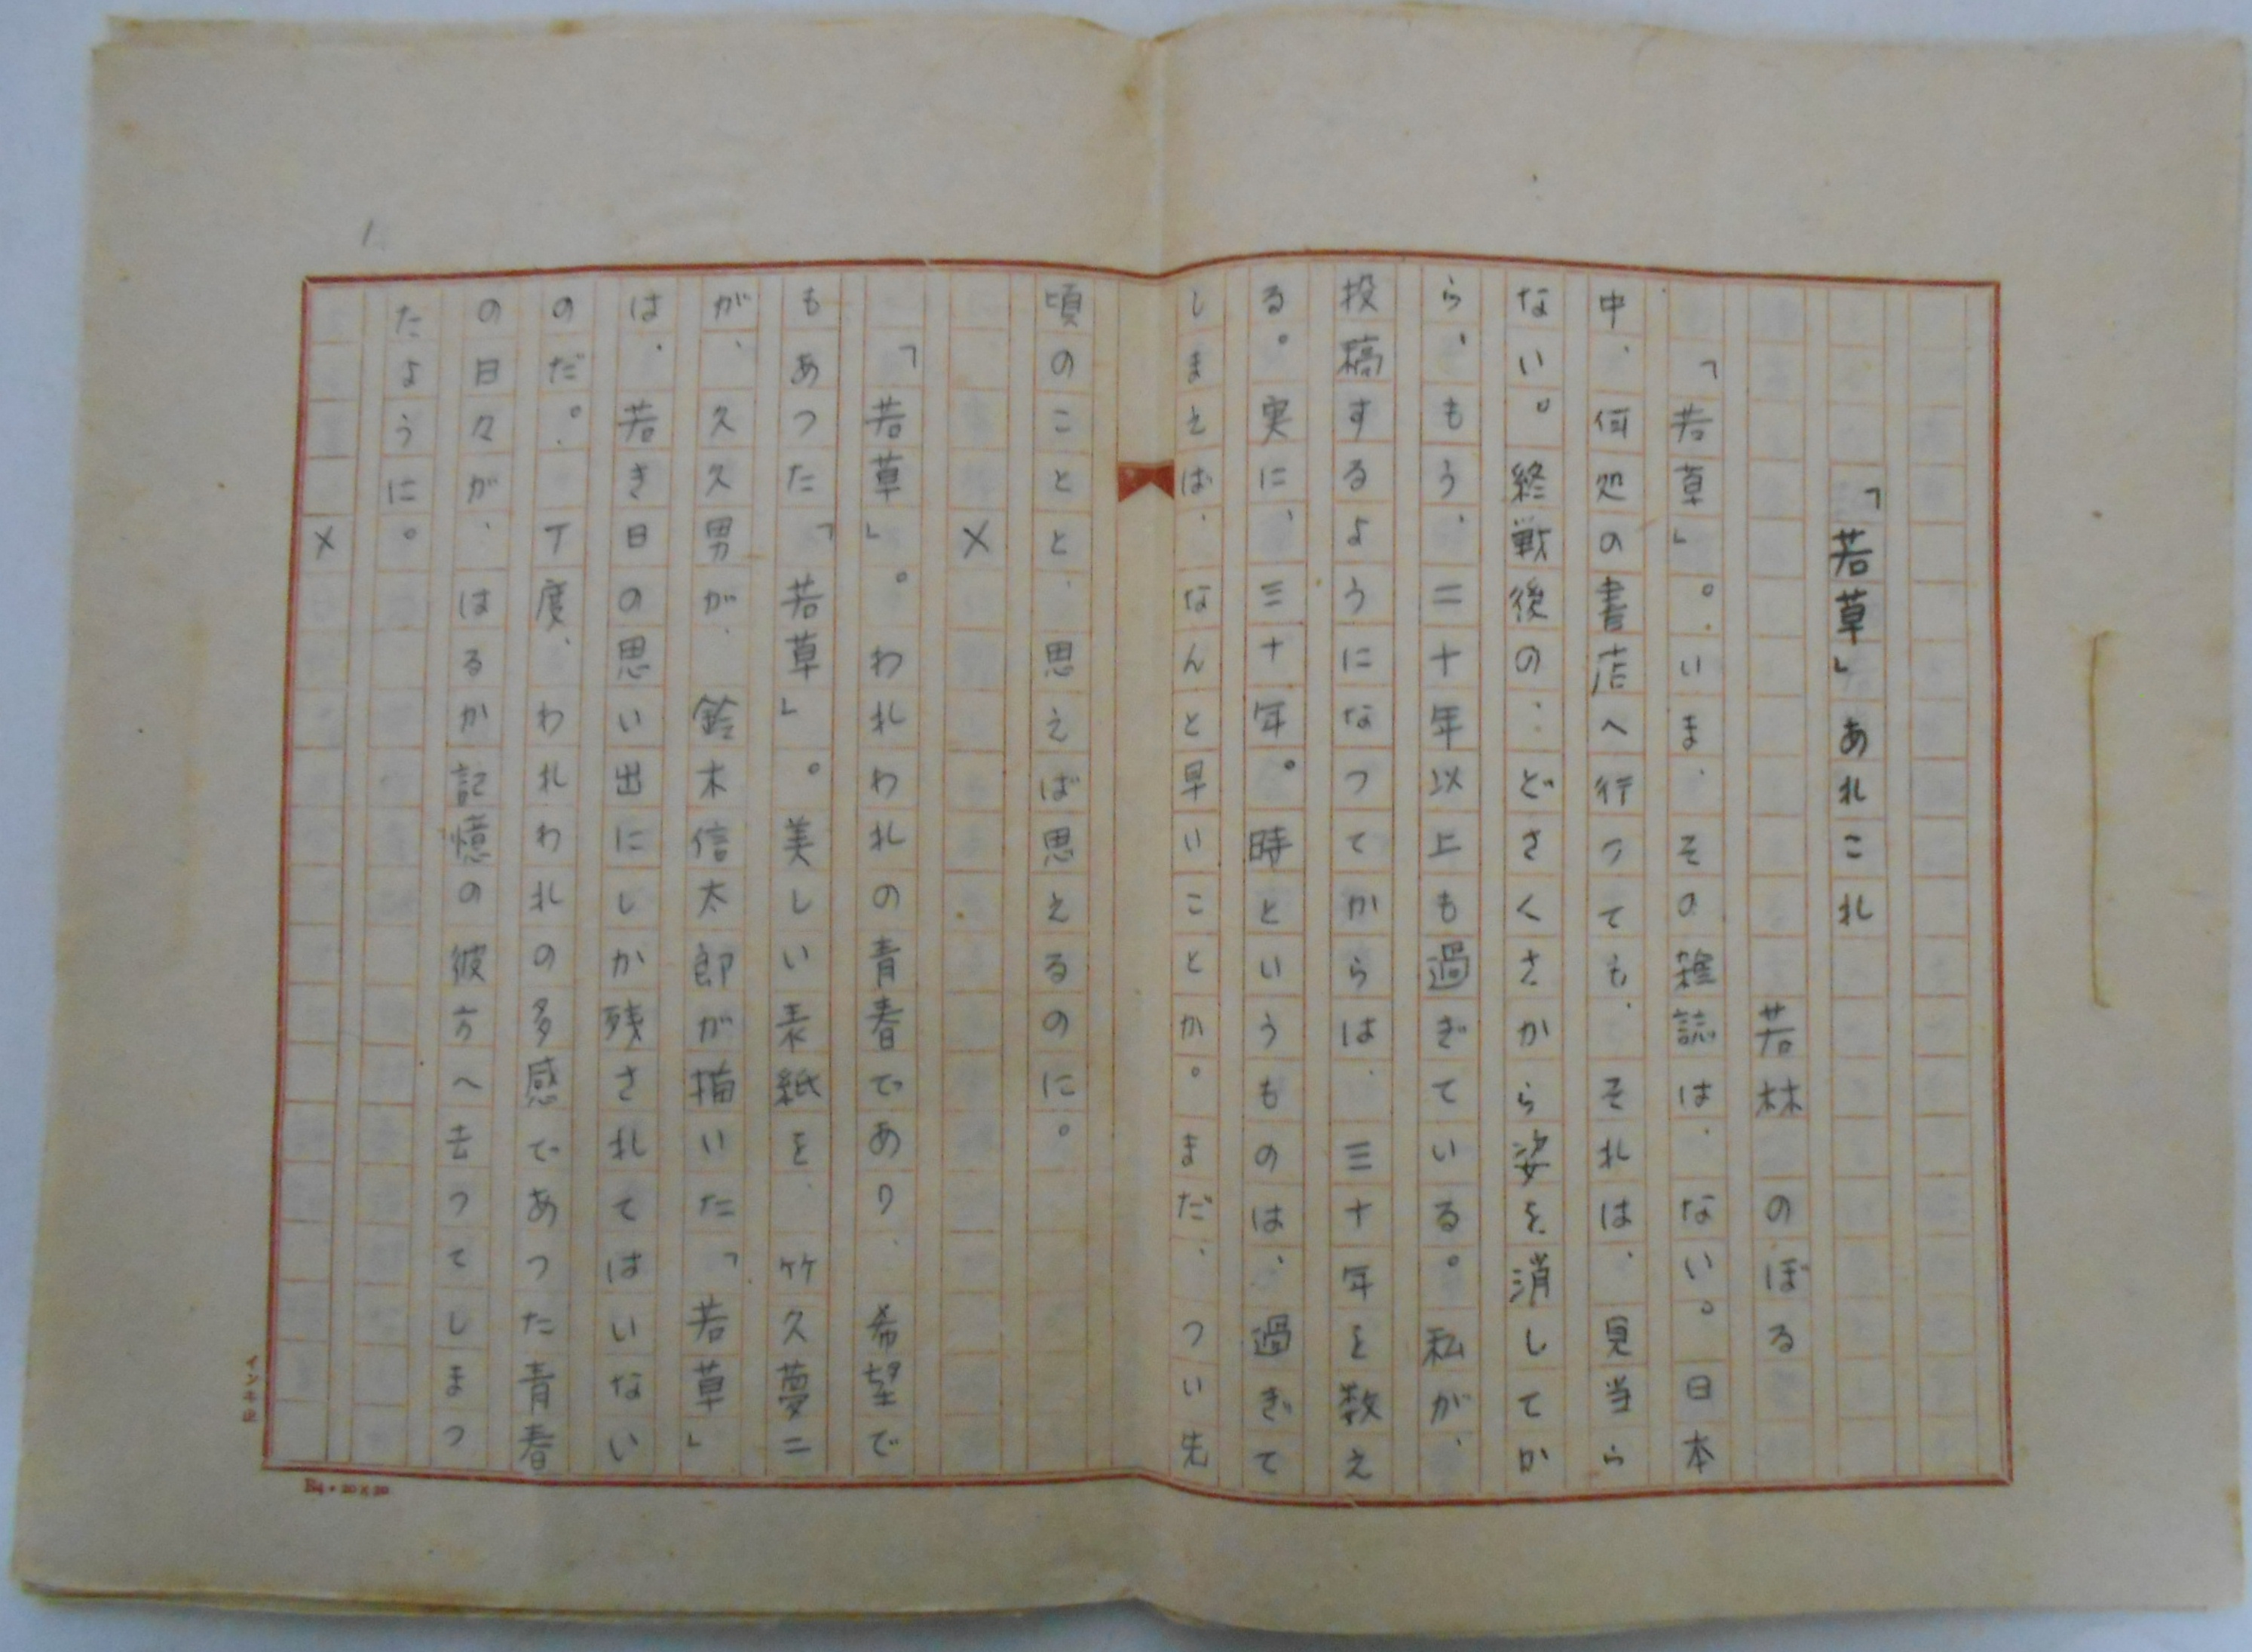 「若草」あれこれ
若林 のぼる
「若草」。いま、その雑誌は、ない。日本
中、何処の書店へ行つても、それは、見当ら
ない。終戦後の…どさくさから姿を消してか
ら、もう、二十年以上も過ぎている。私が、
投稿するようになつてからは、三十年を数え
る。実に、三十年。時というものは、過ぎて
しまえば、なんと早いことか。まだ、つい先
頃のことと、思えば思えるのに。
×
「若草」。われわれの青春であり、希望で
もあつた「若草」。美しい表紙を、竹久夢二
が、久久男が、鈴木信太郎が描いた「若草」
は、若き日の思い出にしか残されてはいない
のだ。丁度、われわれの多感であつた青春
の日々が、はるか記憶の彼方へ去つてしまつ
たように。
×
1.
インキ止
B4・20×20